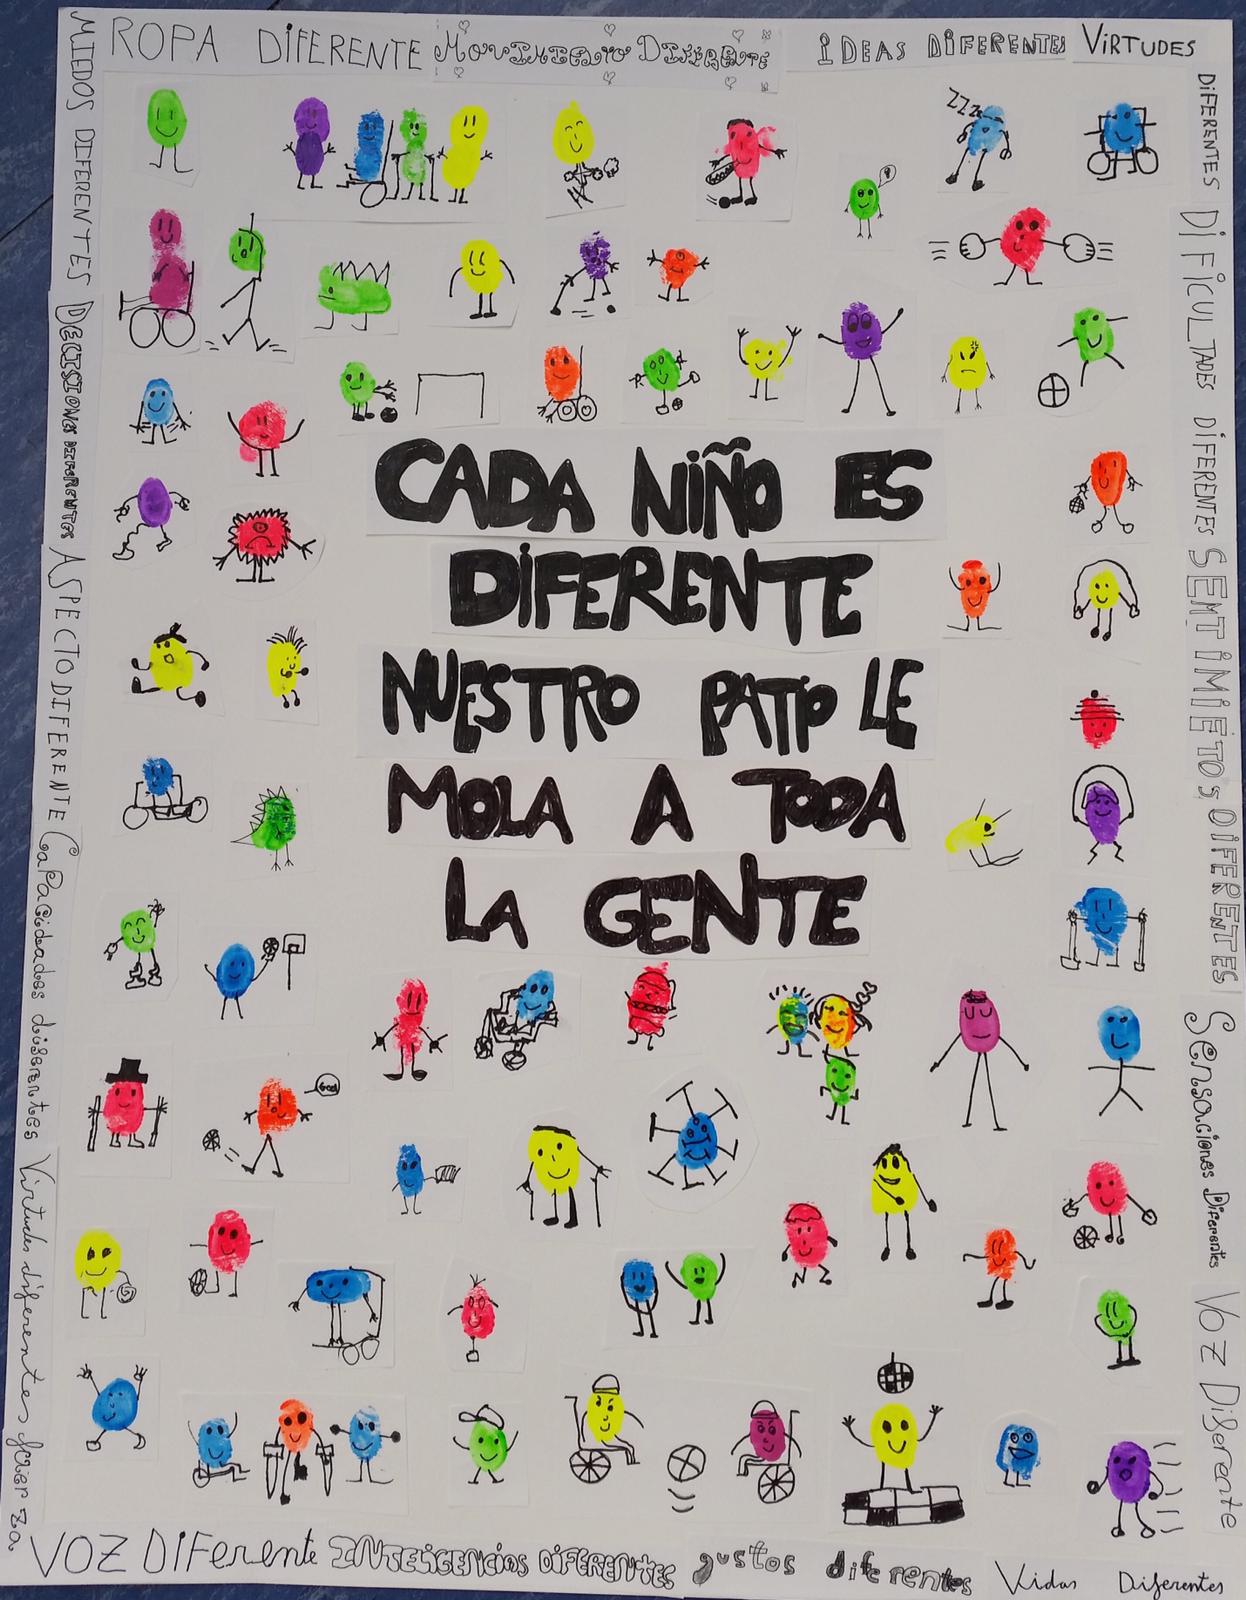 ROPA DIFERENTE MOVIMIENTO DIFERENTE IDEAS DIFERENTES VIRTUDES
DIFERENTES
DIFICULTADES DIFERENTES
SEMTIMIETOS DIFERENTES
Sensaciones Diferentes
VOZ Diferente
MIEDOS DIFERENTES
DECISIONES DIFERENTES
ASPECTO DIFERENTE
CaPacidades diferentes
Virtudes diferentes
ZZZ
Gol
CADA NIÑO ES
DIFERENTE
NUESTRO PATIO LE
MOLA A TODA
LA GENTE
VOZ DIFerente INTELIGENCIAS DIFERENTES gustos diferentes Vidas Diferentes